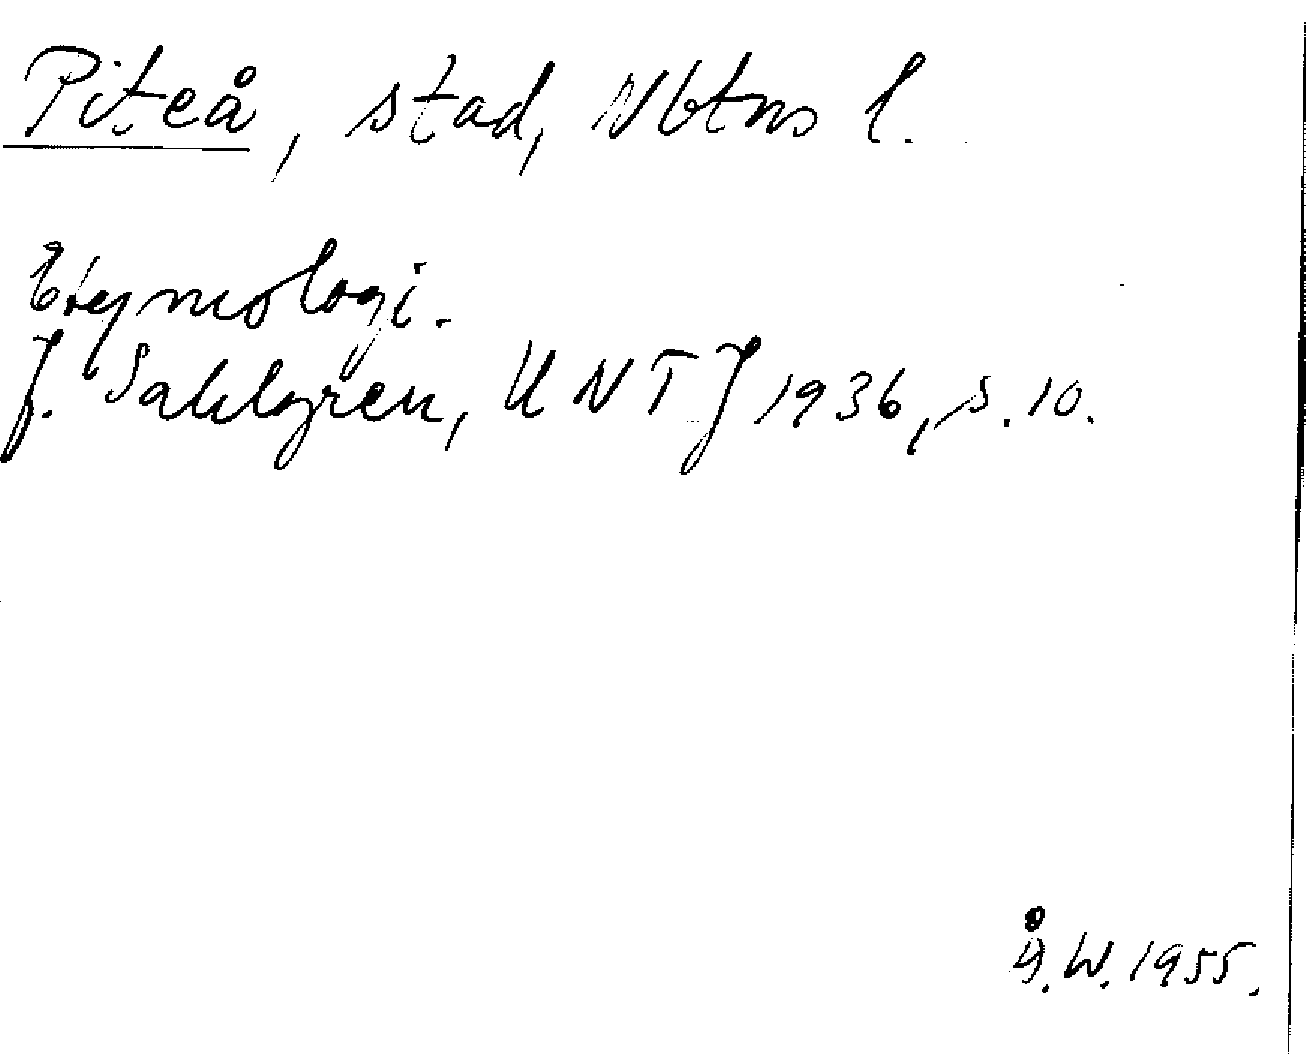 Piteå, stad, Nbtns l.
Etymologi.
J. Sahlgren, UNTJ 1936, s. 10.
Å. W. 1955.